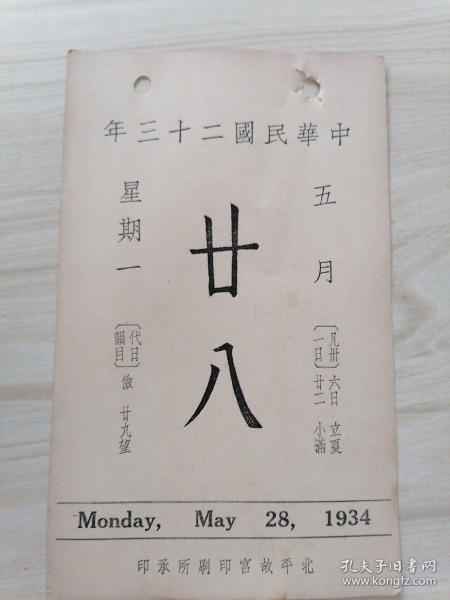 中華民國二十三年
五月
凡卅一日
六日 立夏
廿二 小滿
廿八
星期一
代日韻目
儉 廿九望
Monday, May 28, 1934
北平故宮印刷所承印
孔夫子旧书网